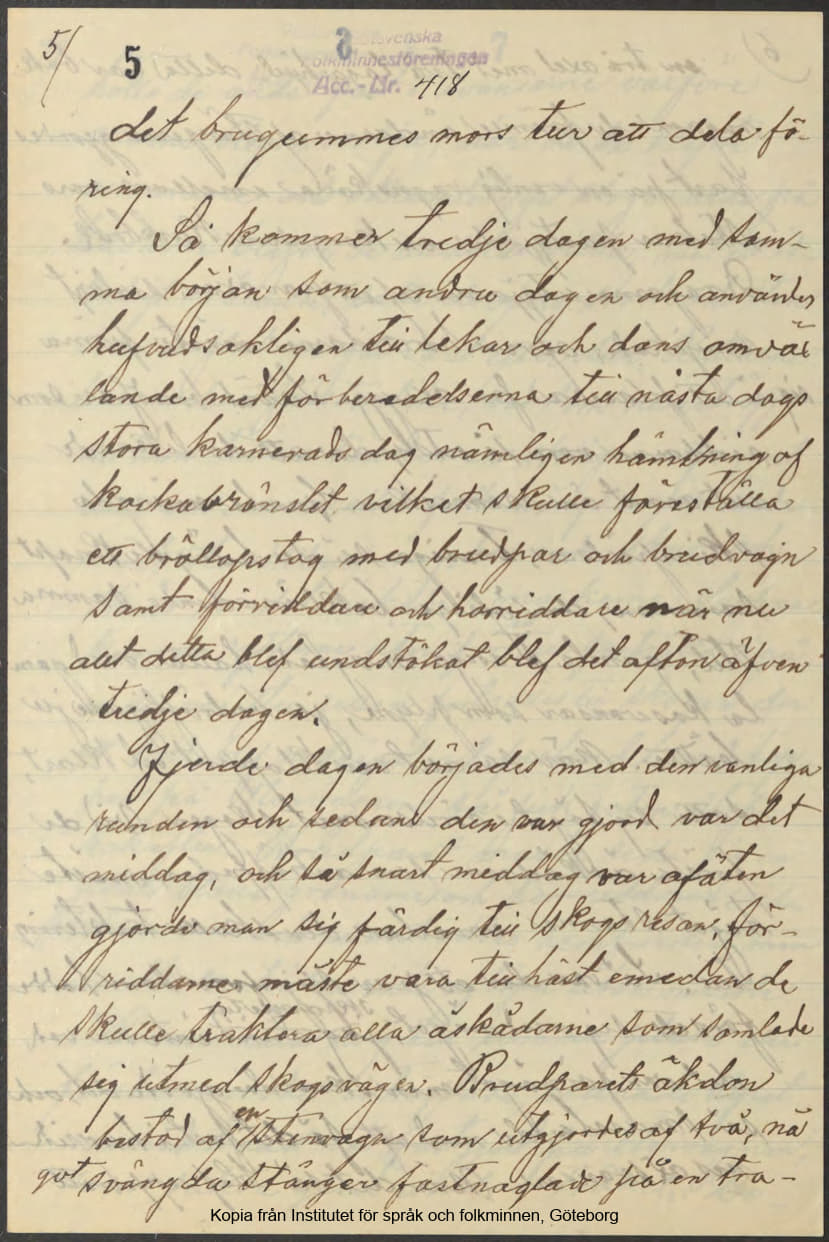 5/ 5
svenska
folkminnesföreningen
Acc.-Nr. 418
det brugummes mors tur att dela fö-
ring.
Så kommer tredje dagen med sam-
ma början som andra dagen och användes
hufvudsakligen till lekar och dans omväx
lande med förberedelserna till nästa dags
stora karnevals dag nämligen hämtning af
kockabränslet vilket skulle föreställa
ett bröllopståg med brudpar och brudvagn
samt förriddare och horriddare när nu
allt detta blef undstökat blef det afton äfven
tredje dagen.
Fjerde dagen börjades med den vanliga
runden och sedan den var gjord var det
middag, och så snart middag var afäten
gjorde man sig färdig till skogs resan, för-
riddarne måste vara till häst emedan de
skulle traktera alla åskådarne som samlade
sig utmed skogsvägen. Brudparets åkdon
bestod af en stenvagn som utgjordes af två, nå
got svängda stänger fastnaglade på en tra-
Kopia från Institutet för språk och folkminnen, Göteborg